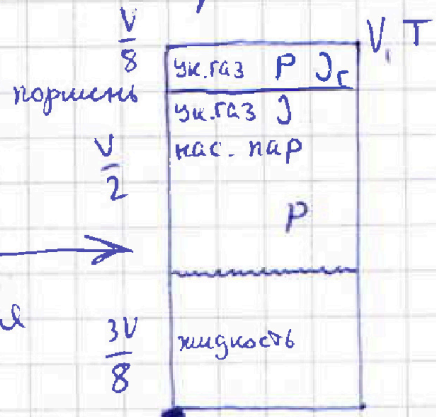 V/8
V, T
ук.газ P Jг
поршень
ук.газ J
V/2
нас. пар
P
я
3V/8
жидкость